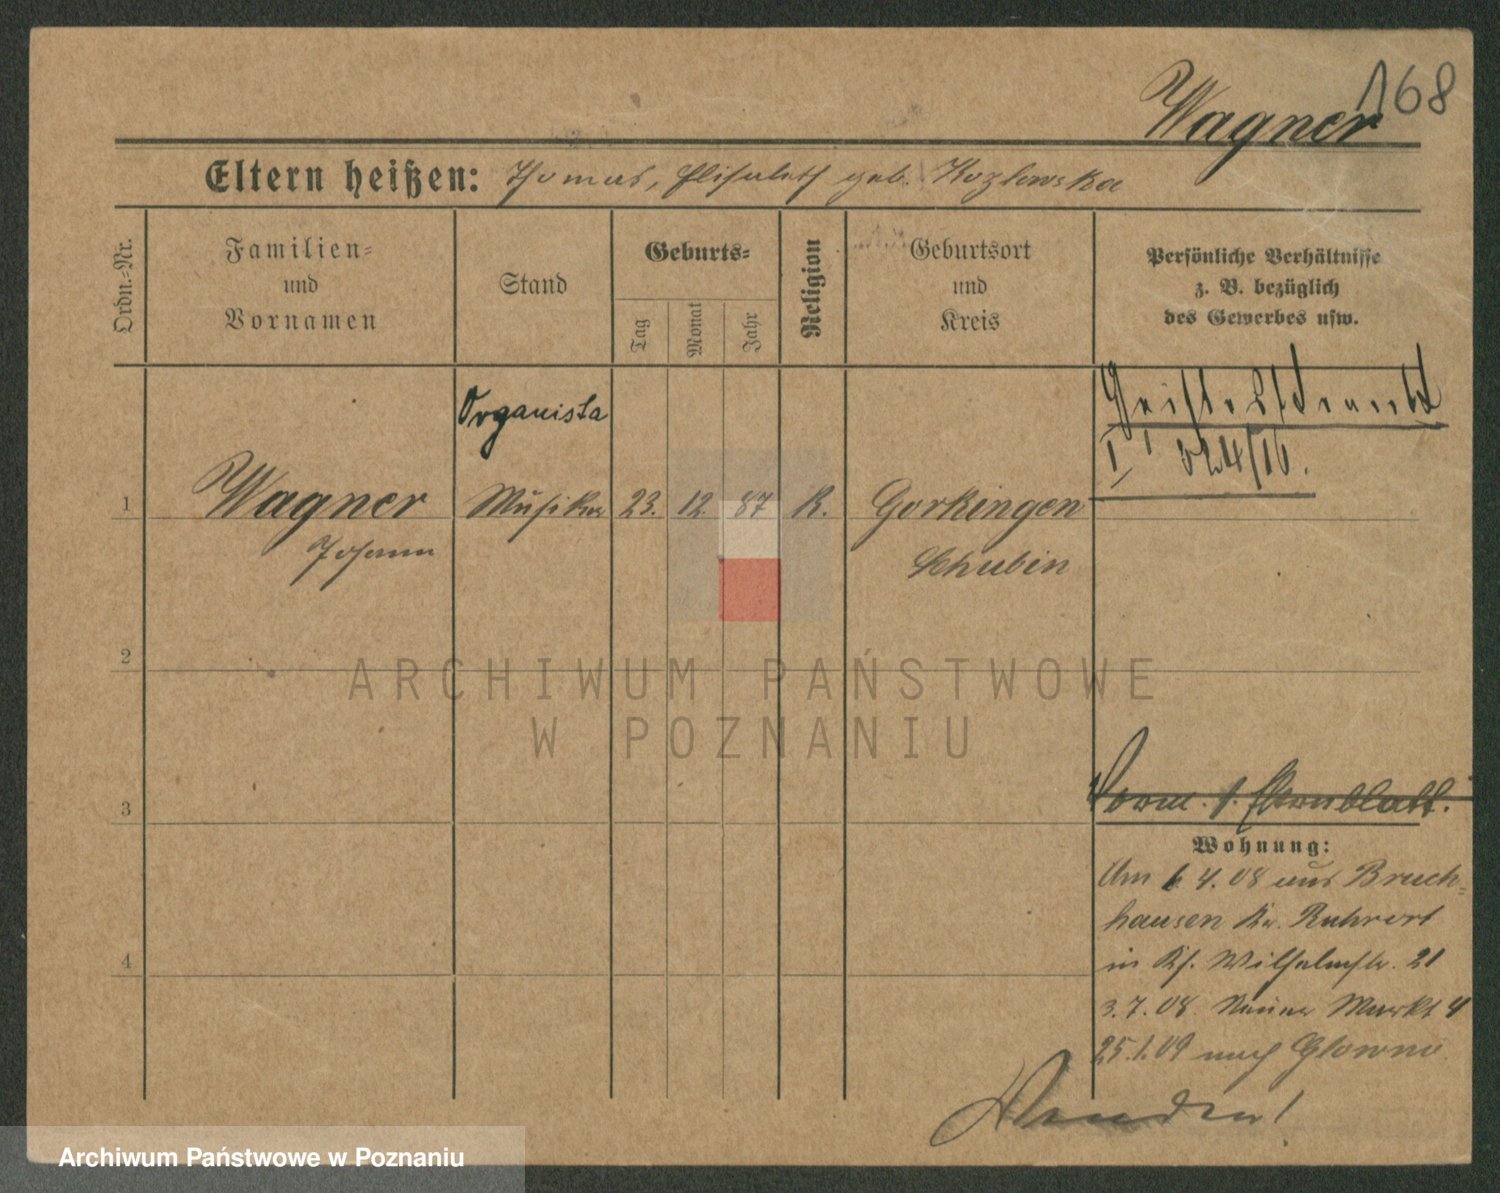 168
Wagner
Eltern heißen: Thomas, Elisabeth geb. Kozlowska
Ordn.-Nr.
Familien-
und
Vornamen
Stand
Geburts-
Tag
Monat
Jahr
Religion
Geburtsort
und
Kreis
Persönliche Verhältnisse
z. B. bezüglich
des Gewerbes usw.
Organista
1
Wagner
Johann
Musiker
23.
12.
87
K.
Gorkingen
Schubin
2
3
4
Verm. s. Stammblatt.
Wohnung:
Am 6 4.08 aus Bruch-
hausen Kr. Ruhrort
in Kf. Wilhelmstr. 21
3.7.08 Neuer Markt 4
25.1.09 nach Glowno
Wenden!
ARCHIWUM PAŃSTWOWE
W POZNANIU
Archiwum Państwowe w Poznaniu